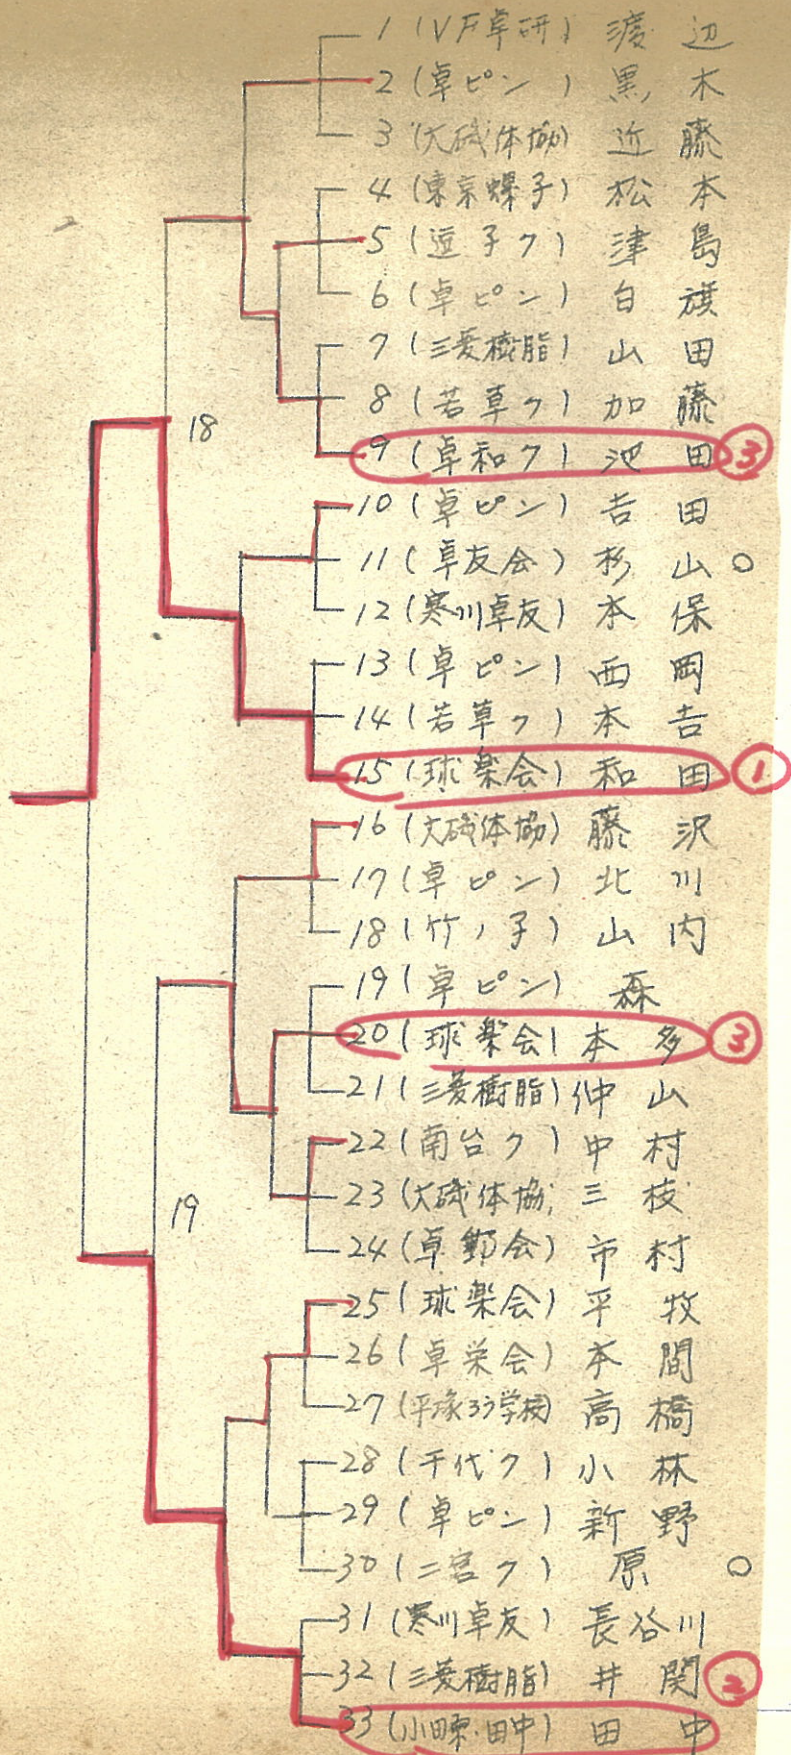 1 (VF卓研) 渡辺
2 (卓ピン) 黒木
3 (大磯体協) 近藤
4 (東京螺子) 松本
5 (逗子ク) 津島
6 (卓ピン) 白旗
7 (三菱樹脂) 山田
8 (若草ク) 加藤
18
9 (卓和ク) 池田 ③
10 (卓ピン) 吉田
11 (卓友会) 杉山 ○
12 (寒川卓友) 本保
13 (卓ピン) 西岡
14 (若草ク) 本吉
15 (球楽会) 和田 ①
16 (大磯体協) 藤沢
17 (卓ピン) 北川
18 (竹ノ子) 山内
19 (卓ピン) 森
20 (球楽会) 本多 ③
21 (三菱樹脂) 仲山
22 (南台ク) 中村
23 (大磯体協) 三枝
19
24 (卓郵会) 市村
25 (球楽会) 平牧
26 (卓栄会) 本間
27 (平塚ろう学校) 高橋
28 (千代ク) 小林
29 (卓ピン) 新野
30 (二宮ク) 原 ○
31 (寒川卓友) 長谷川
32 (三菱樹脂) 井関 ②
33 (小田原・田中) 田中